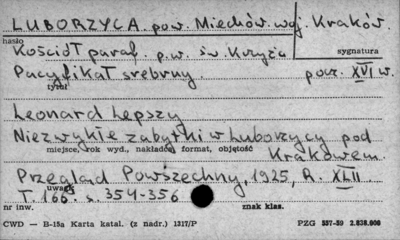 LUBORZYCA pow. Miechów. woj. Kraków.
hasło
Kościół paraf. p.w. św Krzyża
sygnatura
Pacyfikał srebrny. pocz. XVI w.
tytuł
Leonard Lepszy
Niezwykłe zabytki w Luborzycy pod
miejsce, rok wyd., nakładca, format, objętość
Krakowem.
Przegląd Powszechny, 1925, R. XLII
uwagi
T. 166. s. 354-356
nr inw.
znak klas.
CWD — B-15a Karta katal. (z nadr.) 1217/P
PZG 557-59 2.838.000